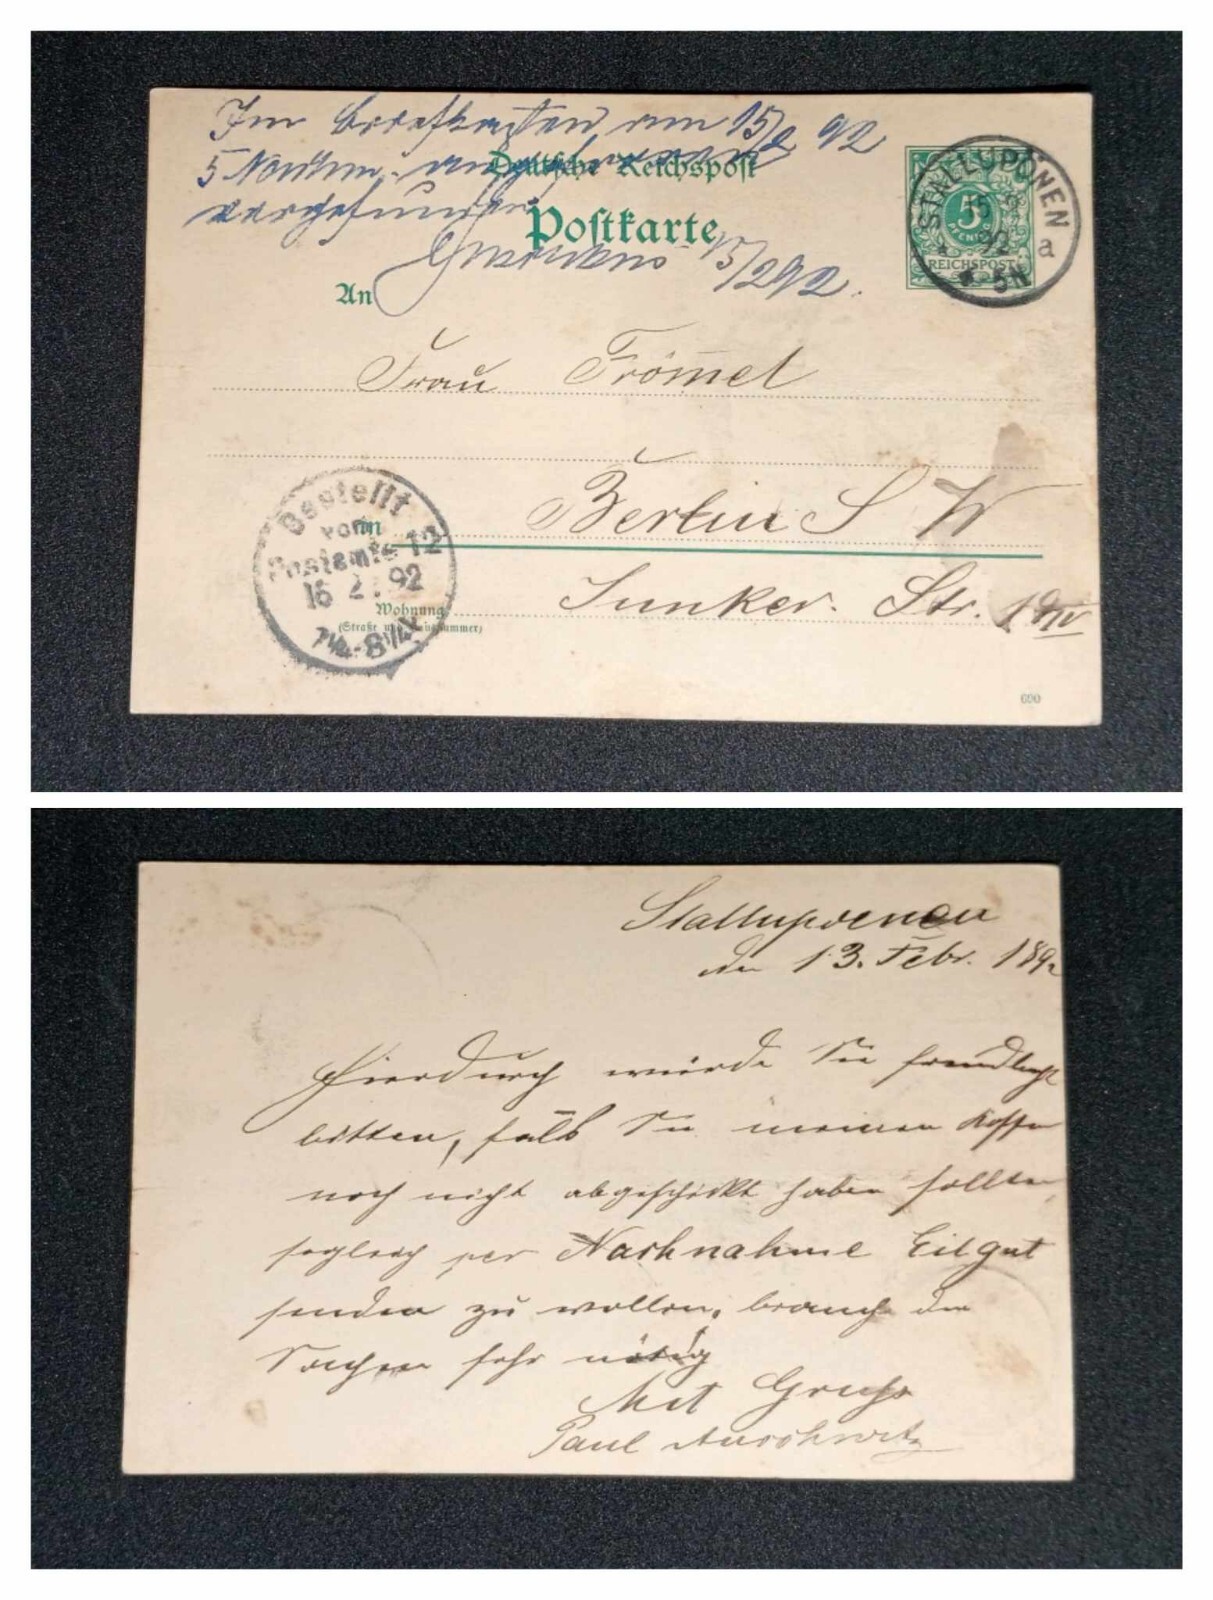 Im Briefkasten am 15/2 92
5 Nachm. vorgefunden
15/2 92.
Deutsche Reichspost
Postkarte
STALLUPÖNEN
15 2
92
5N
a
5
PFENNIG
REICHSPOST
An
Frau Frömmel
in
Berlin S W
Wohnung
(Straße und Hausnummer)
Junker. Str. 1
Bestellt
vom
Postamte 12
16 2. 92
7¼-8¼V
690
Stallupoenen
den 13. Febr. 1892
Hierdurch würde Sie freundlichst
bitten, falls Sie meinen Koffer
noch nicht abgeschickt haben sollten,
sogleich per Nachnahme Eilgut
senden zu wollen, brauche die
Sachen sehr nötig
Mit Gruß
Paul Auschwitz